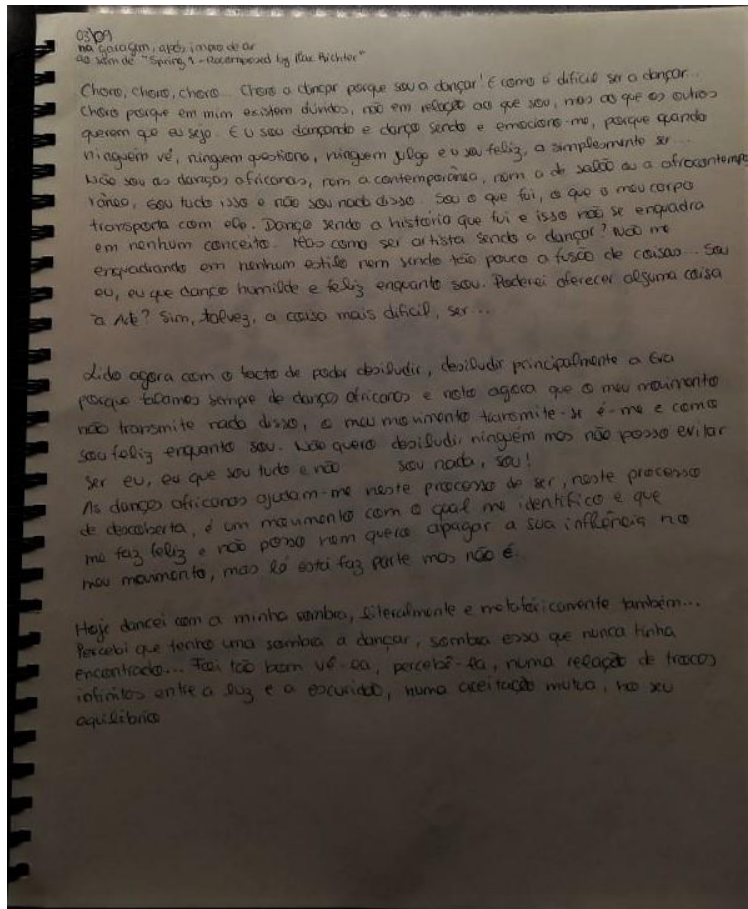 03\09
na garagem, após impro de ar
ao som de "Spring 1 - Recomposed by Max Richter"
Choro, choro, choro... Choro a dançar porque sou a dançar! E como é difícil ser a dançar...
Choro porque em mim existem dúvidas, não em relação ao que sou, mas ao que os outros
querem que eu seja. Eu sou dançando e danço sendo e emociono-me, porque quando
ninguém vê, ninguém questiona, ninguém julga e eu sou feliz, a simplesmente ser...
Não sou as danças africanas, nem a contemporânea, nem a de salão ou a afrocontempo
rânea, sou tudo isso e não sou nada disso. Sou o que fui, o que o meu corpo
transporta com ele. Danço sendo a história que fui e isso não se enquadra
em nenhum conceito. Mas como ser artista sendo a dançar? Não me
enquadrando em nenhum estilo nem sendo tão pouco a fusão de coisas... Sou
eu, eu que danço humilde e feliz enquanto sou. Poderei oferecer alguma coisa
à Arte? Sim, talvez, a coisa mais difícil, ser...
Lido agora com o facto de poder desiludir, desiludir principalmente a Eva
porque falamos sempre de danças africanas e noto agora que o meu movimento
não transmite nada disso, o meu movimento transmite-se é-me e como
sou feliz enquanto sou. Não quero desiludir ninguém mas não posso evitar
ser eu, eu que sou tudo e não sou nada, sou!
As danças africanas ajudam-me neste processo de ser, neste processo
de descoberta, é um movimento com o qual me identifico e que
me faz feliz e não posso nem quero apagar a sua influência no
meu movimento, mas lá está faz parte mas não é.
Hoje dancei com a minha sombra, literalmente e metaforicamente também...
Percebi que tenho uma sombra a dançar, sombra essa que nunca tinha
encontrado... Foi tão bom vê-la, percebê-la, numa relação de traços
infinitos entre a luz e a escuridão, numa aceitação mutua, no seu
aquilibrio